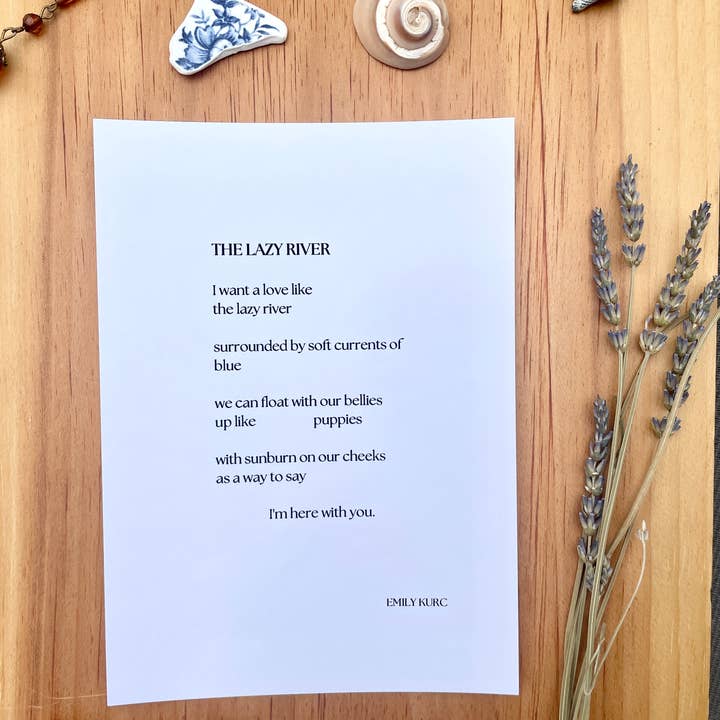 THE LAZY RIVER
I want a love like
the lazy river
surrounded by soft currents of
blue
we can float with our bellies
up like puppies
with sunburn on our cheeks
as a way to say
I'm here with you.
EMILY KURC